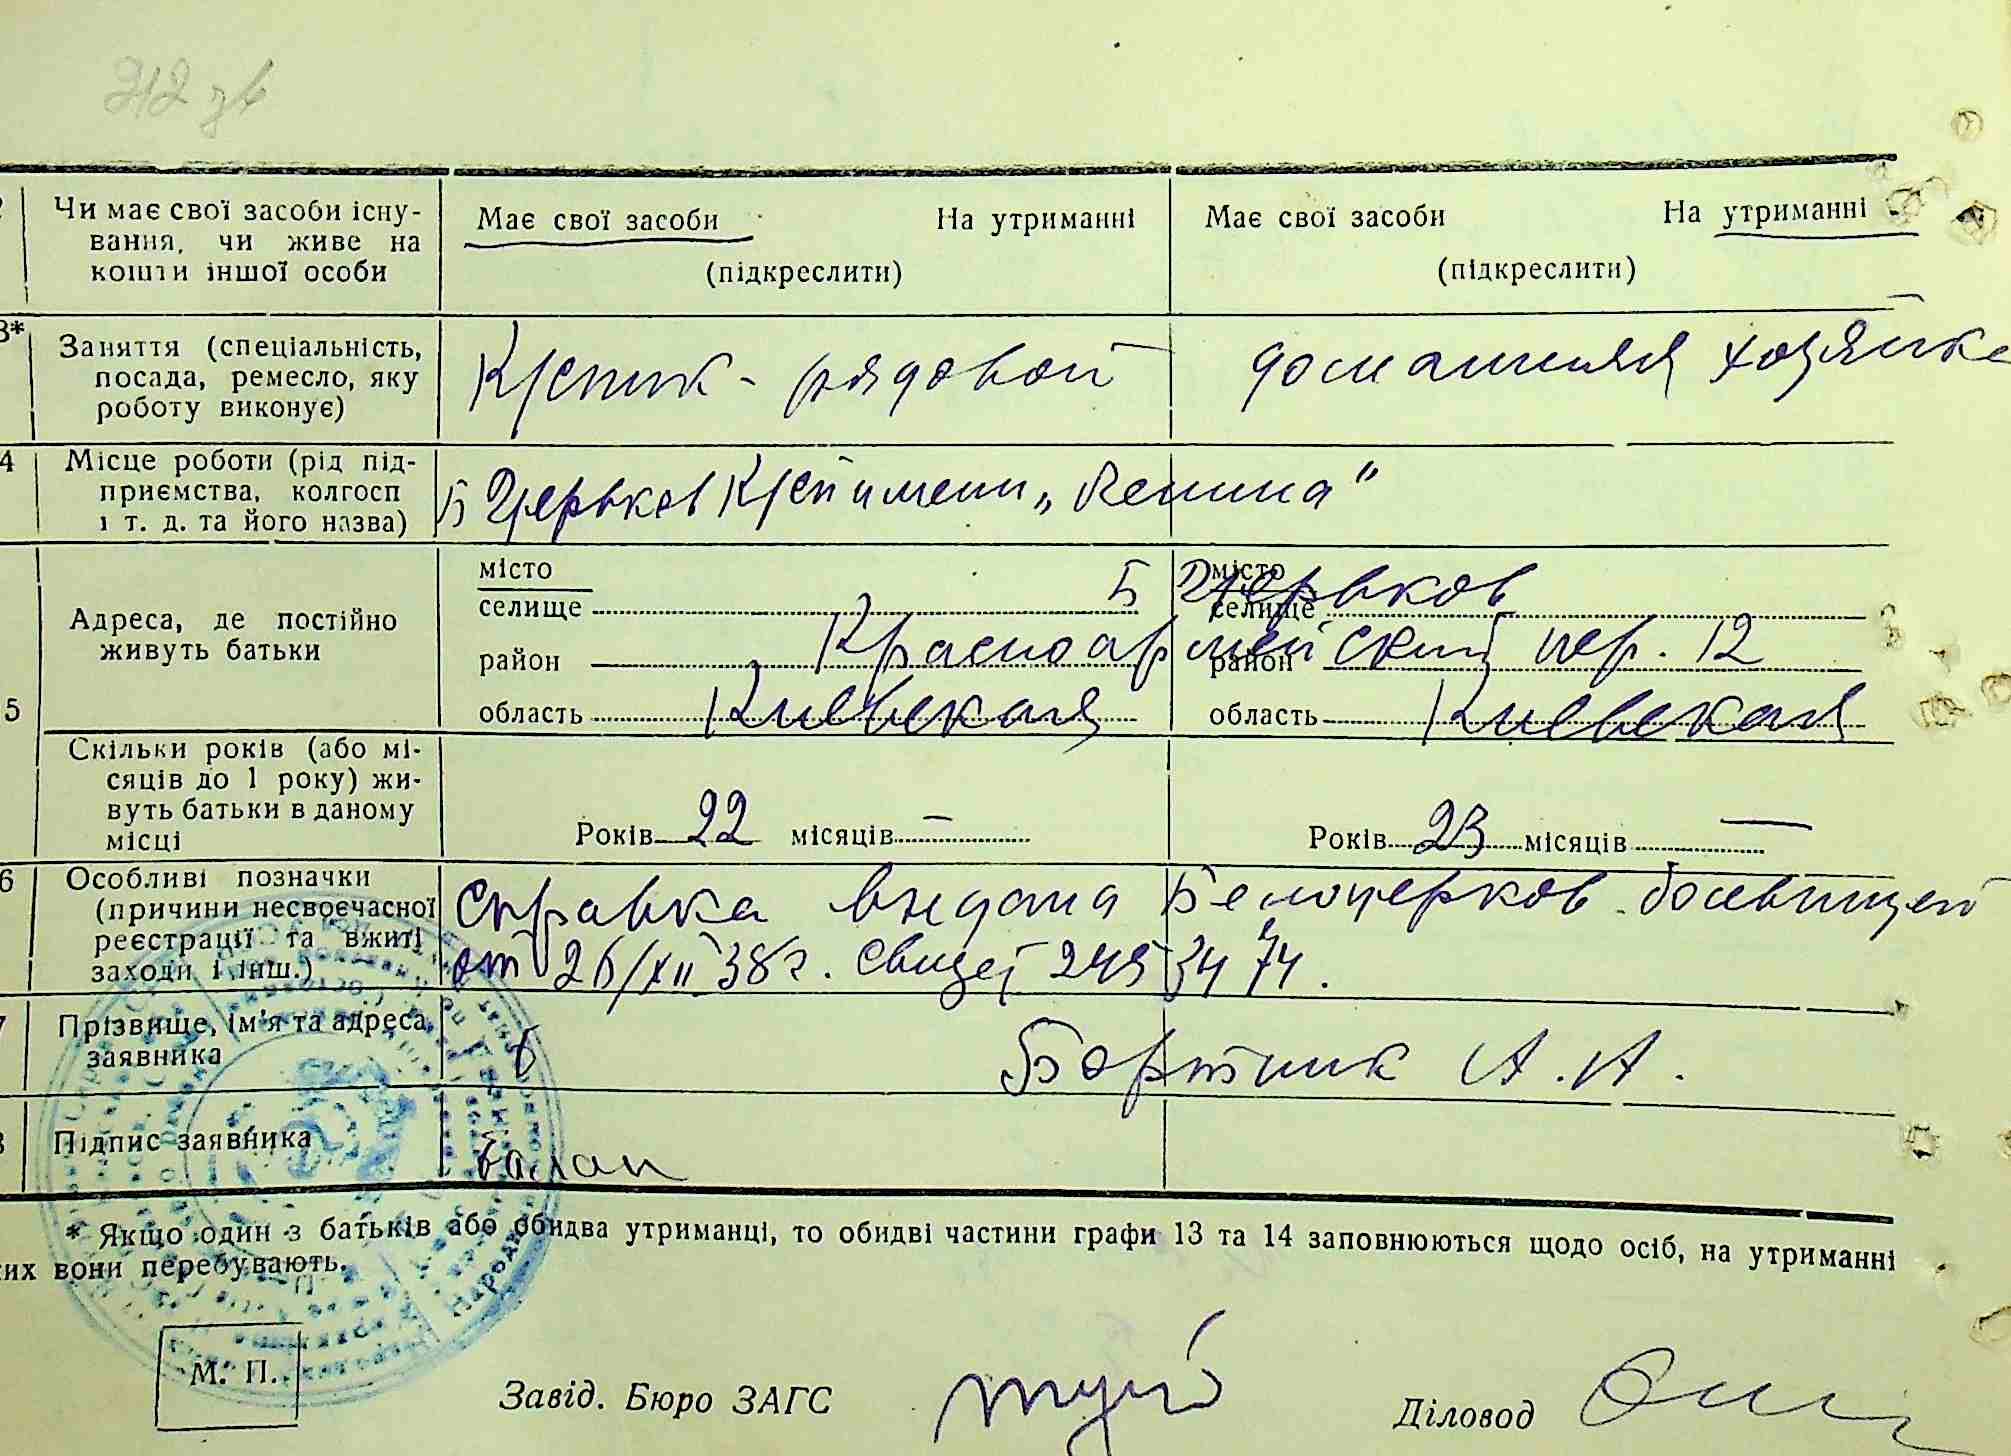 212 зв
2 Чи має свої засоби існу-
вання, чи живе на
кошти іншої особи
Має свої засоби На утриманні
(підкреслити)
Має свої засоби На утриманні
(підкреслити)
3* Заняття (спеціальність,
посада, ремесло, яку
роботу виконує)
рядовой
домашняя хозяйка
4 Місце роботи (рід під-
приємства, колгосп
і т. д. та його назва)
Б Церьков имени „Ленина"
5 Адреса, де постійно
живуть батьки
місто
селище
район
область Киевская
місто
селище
район
область Киевская
Б Церьков
Красноармейский пер. 12
Скільки років (або мі-
сяців до 1 року) жи-
вуть батьки в даному
місці
Років 22 місяців —
Років 23 місяців —
6 Особливі позначки
(причини несвоєчасної
реєстрації та вжиті
заходи і інш.)
Справка выдана Белоцерков.
от 26/XII 38 г. 
7 Прізвище, ім'я та адреса
заявника
Бортник А. А.
8 Підпис заявника
* Якщо один з батьків або обидва утриманці, то обидві частини графи 13 та 14 заповнюються щодо осіб, на утриманні
ких вони перебувають.
М. П.
Завід. Бюро ЗАГС
Діловод